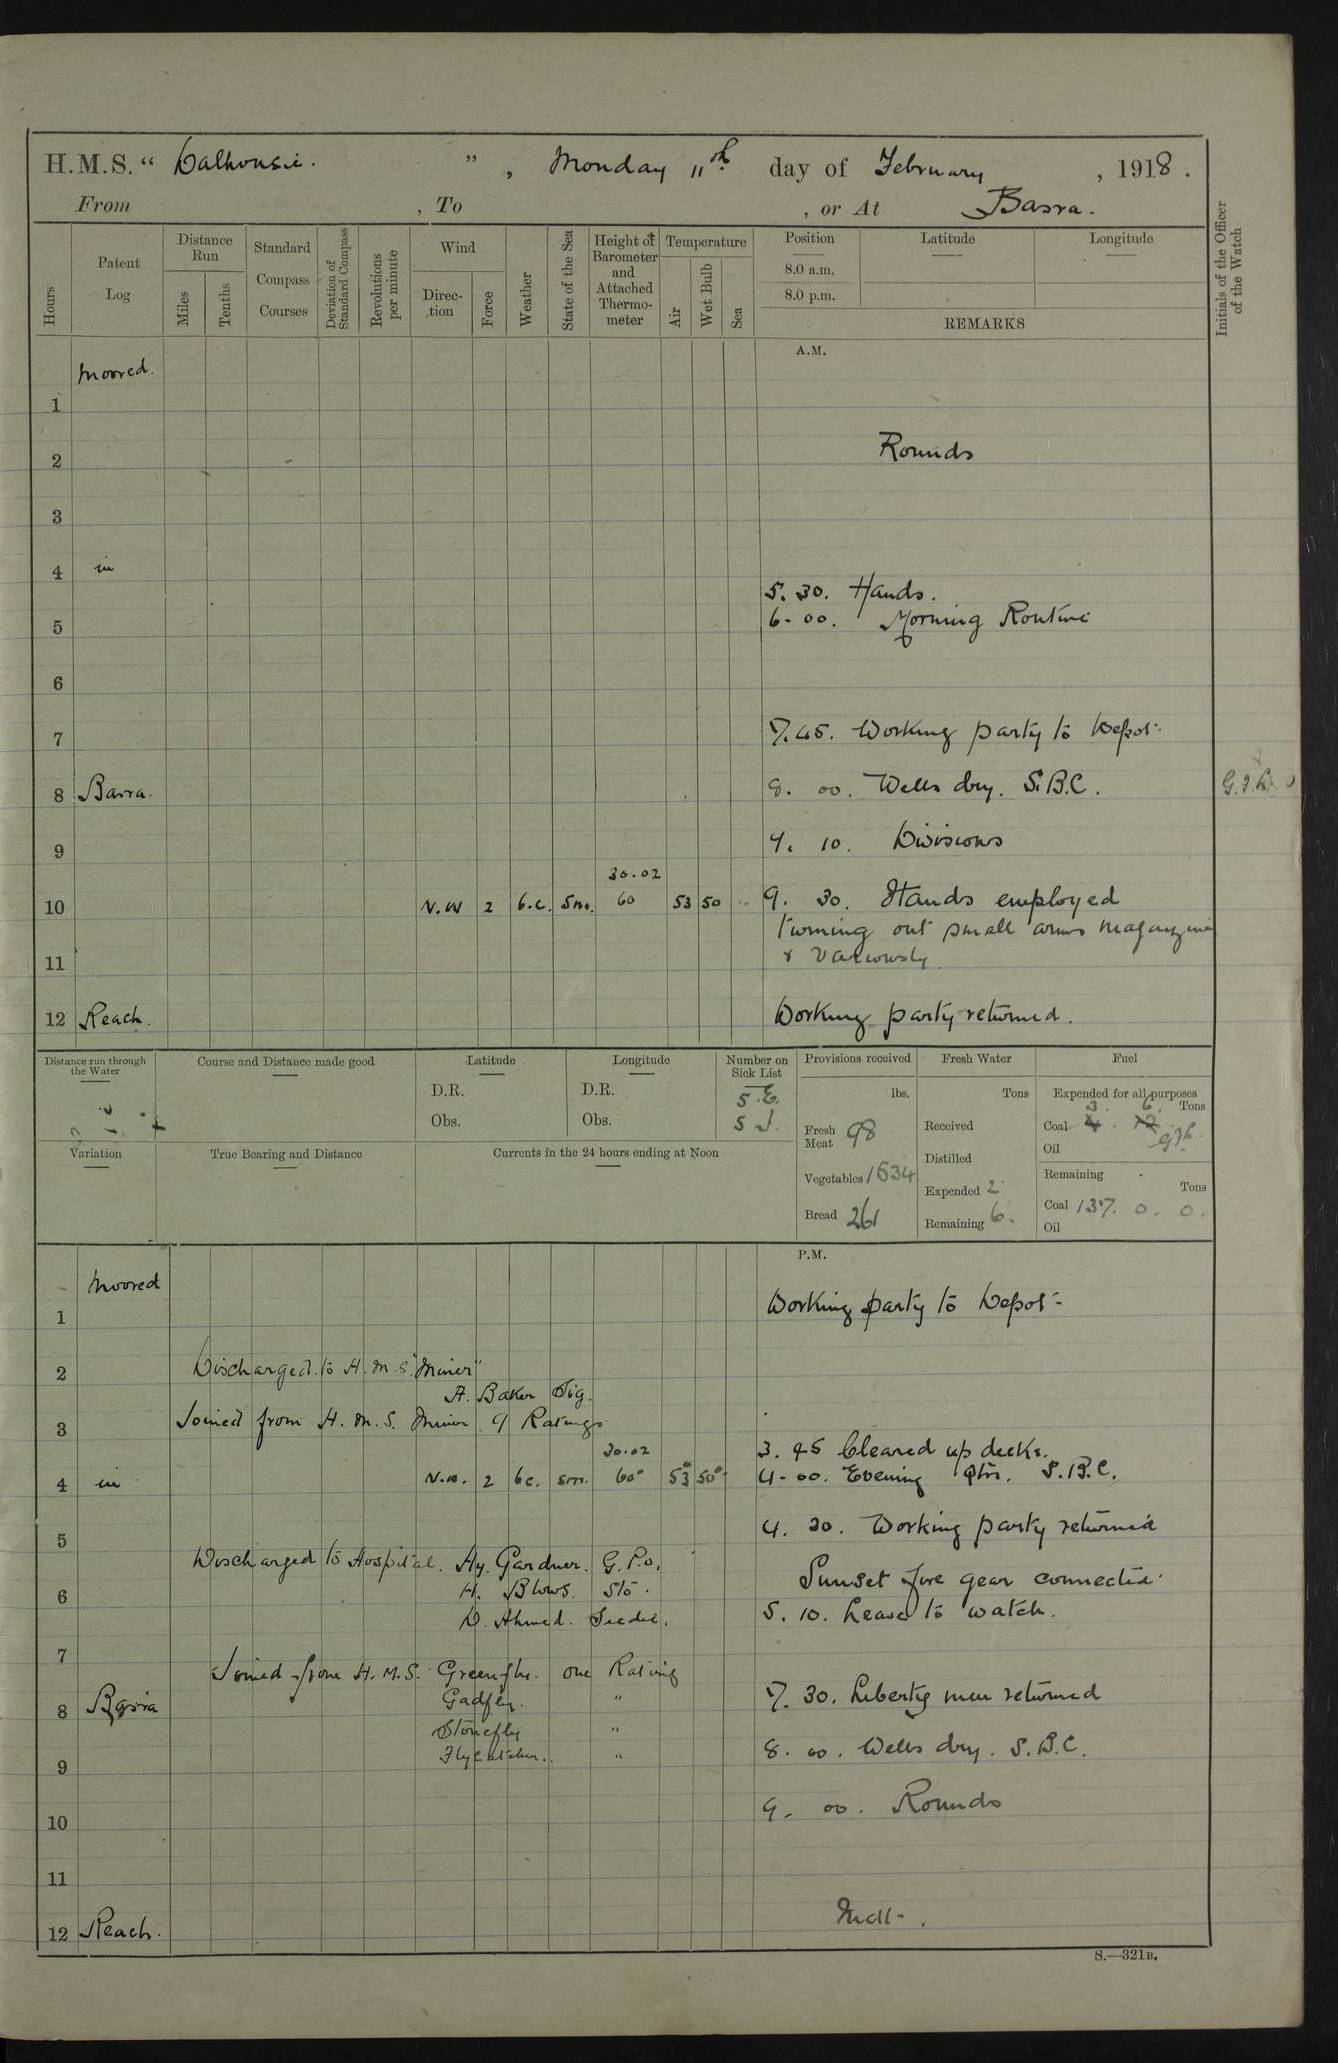 H.M.S. “ Dalhousie. ” , Monday 11th day of February , 1918 .
From , To , or At Basra.
Hours
Patent Log
Distance Run
Miles
Tenths
Standard Compass Courses
Deviation of Standard Compass
Revolutions per minute
Wind
Direction
Force
Weather
State of the Sea
Height of Barometer and Attached Thermometer
Temperature
Air
Wet Bulb
Sea
Position
8.0 a.m.
8.0 p.m.
Latitude
Longitude
REMARKS
Initials of the Officer of the Watch
A.M.
Moored.
1
2 Rounds
3
4 in
5.30. Hands.
5 6-00. Morning Routine
6
7 7.45. Working party to Depot.
8 Basra. 8. 00. Wells dry. S.B.C.
9 9. 10. Divisions
30.02
10 N.W 2 b.c. Sm. 60 53 50 9. 30. Hands employed
turning out small arms magazine
11 & variously.
12 Reach. Working party returned.
Distance run through the Water
Course and Distance made good
Latitude
D.R.
Obs.
Longitude
D.R.
Obs.
Number on Sick List
5 E.
5 I.
Provisions received
lbs.
Fresh Meat 98
Vegetables 1634
Bread 261
Fresh Water
Tons
Received
Distilled
Expended 2
Remaining 6.
Fuel
Expended for all purposes
3. 6. Tons
Coal 4. 12
Oil
Remaining
Tons
Coal 137. 0. 0.
Oil
Variation
True Bearing and Distance
Currents in the 24 hours ending at Noon
P.M.
Moored
1 Working party to Depot.
2 Discharged to H.M.S "Miner"
A. Baker Sig.
3 Joined from H.M.S. Miner 9 Ratings
30.02 3. 45 Cleared up decks.
4 in N.W. 2 bc. sm. 60° 53° 50° 4-00. Evening Qtrs. S.B.C.
4. 30. Working party returned
5
Discharged to Hospital. Hy. Gardner. G.P.O. Sunset fire gear connected.
6 H. Blows. Sto.
D. Ahmed. Seedie. 5. 10. Leave to watch.
7
Joined from H.M.S. Greenfly. one Rating
8 Basra Gadfly. " 7. 30. Liberty men returned
Stonefly "
9 Flycatcher. " 8. 00. Wells dry. S.B.C.
10 9. 00. Rounds
11
12 Reach. Mdt.
S.—321B.